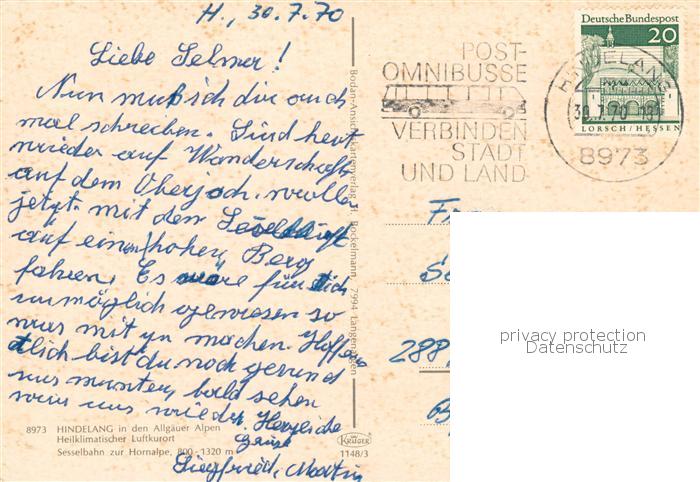 H., 30.7.70
Liebe Selmer!
Nun muß ich dir auch
mal schreiben. Sind heut
wieder auf Wanderschaft
auf dem Oberjoch. wollen
jetzt mit dem Sessellift
auf einen hohen Berg
fahren. Es wäre für dich
unmöglich gewesen so
was mit zu machen. Hoffen
tlich bist du noch gesund
und munter, bald sehen
wir uns wieder. Herzliche
Grüße
Siegfried, Martin
8973 HINDELANG in den Allgäuer Alpen
Heilklimatischer Luftkurort
Sesselbahn zur Hornalpe, 800-1320 m
Bodan-Ansichtskartenverlag H. Bockelmann, 7994 Langenargen
KRÜGER
1148/3
POST-
OMNIBUSSE
VERBINDEN
STADT
UND LAND
HINDELANG
30.7.70
8973
Deutsche Bundespost
20
LORSCH/HESSEN
288
privacy protection
Datenschutz